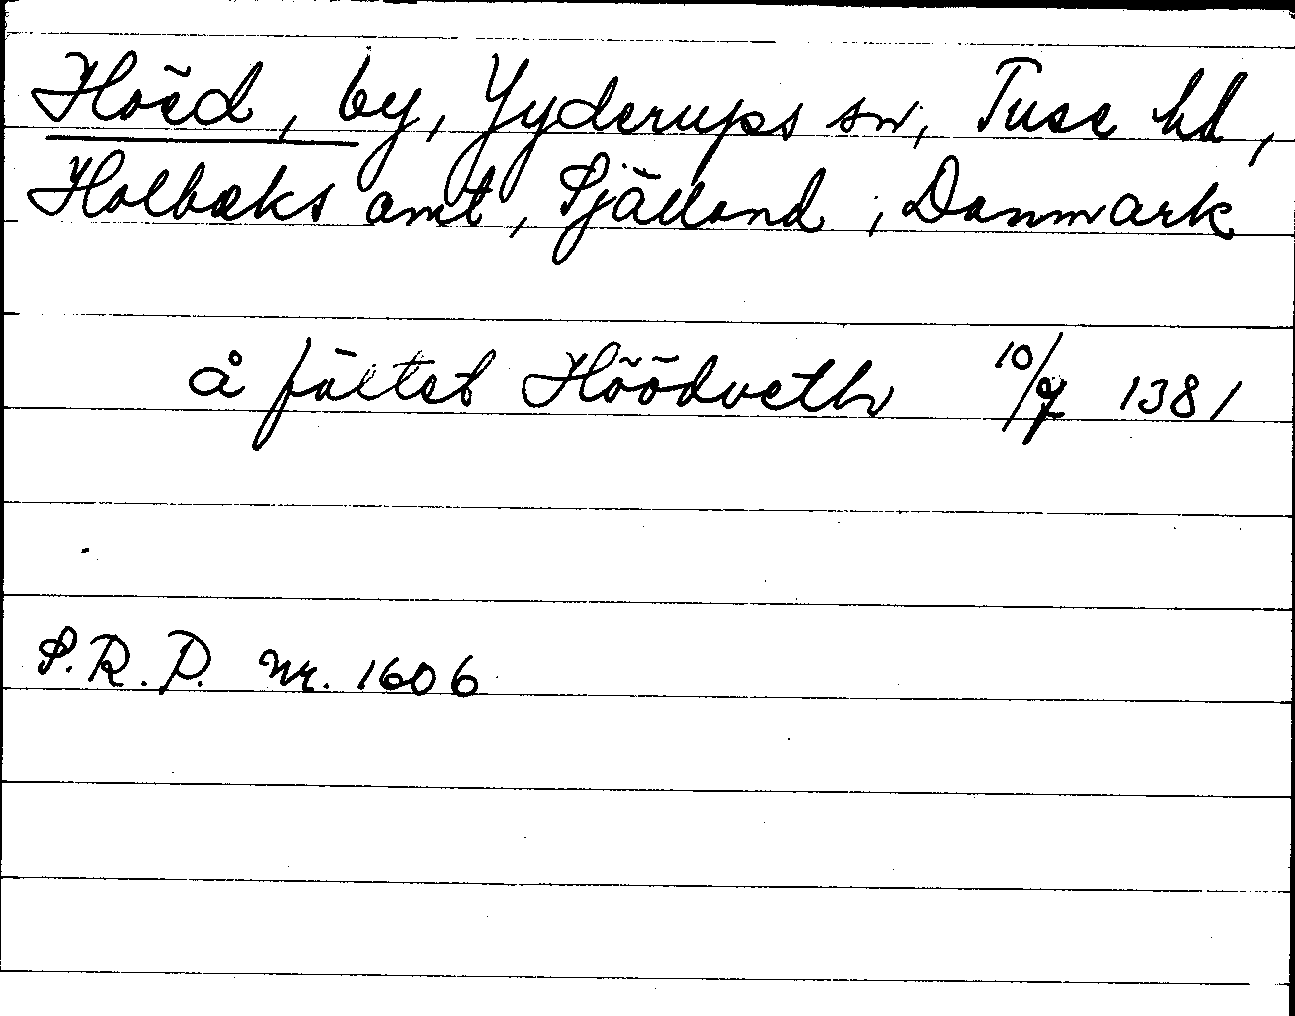 Höed, by, Jyderups sn, Tuse hd,
Holbæks amt, Själland, Danmark
å fältet Höödveth 10/7 1381
S.R.P. nr. 1606